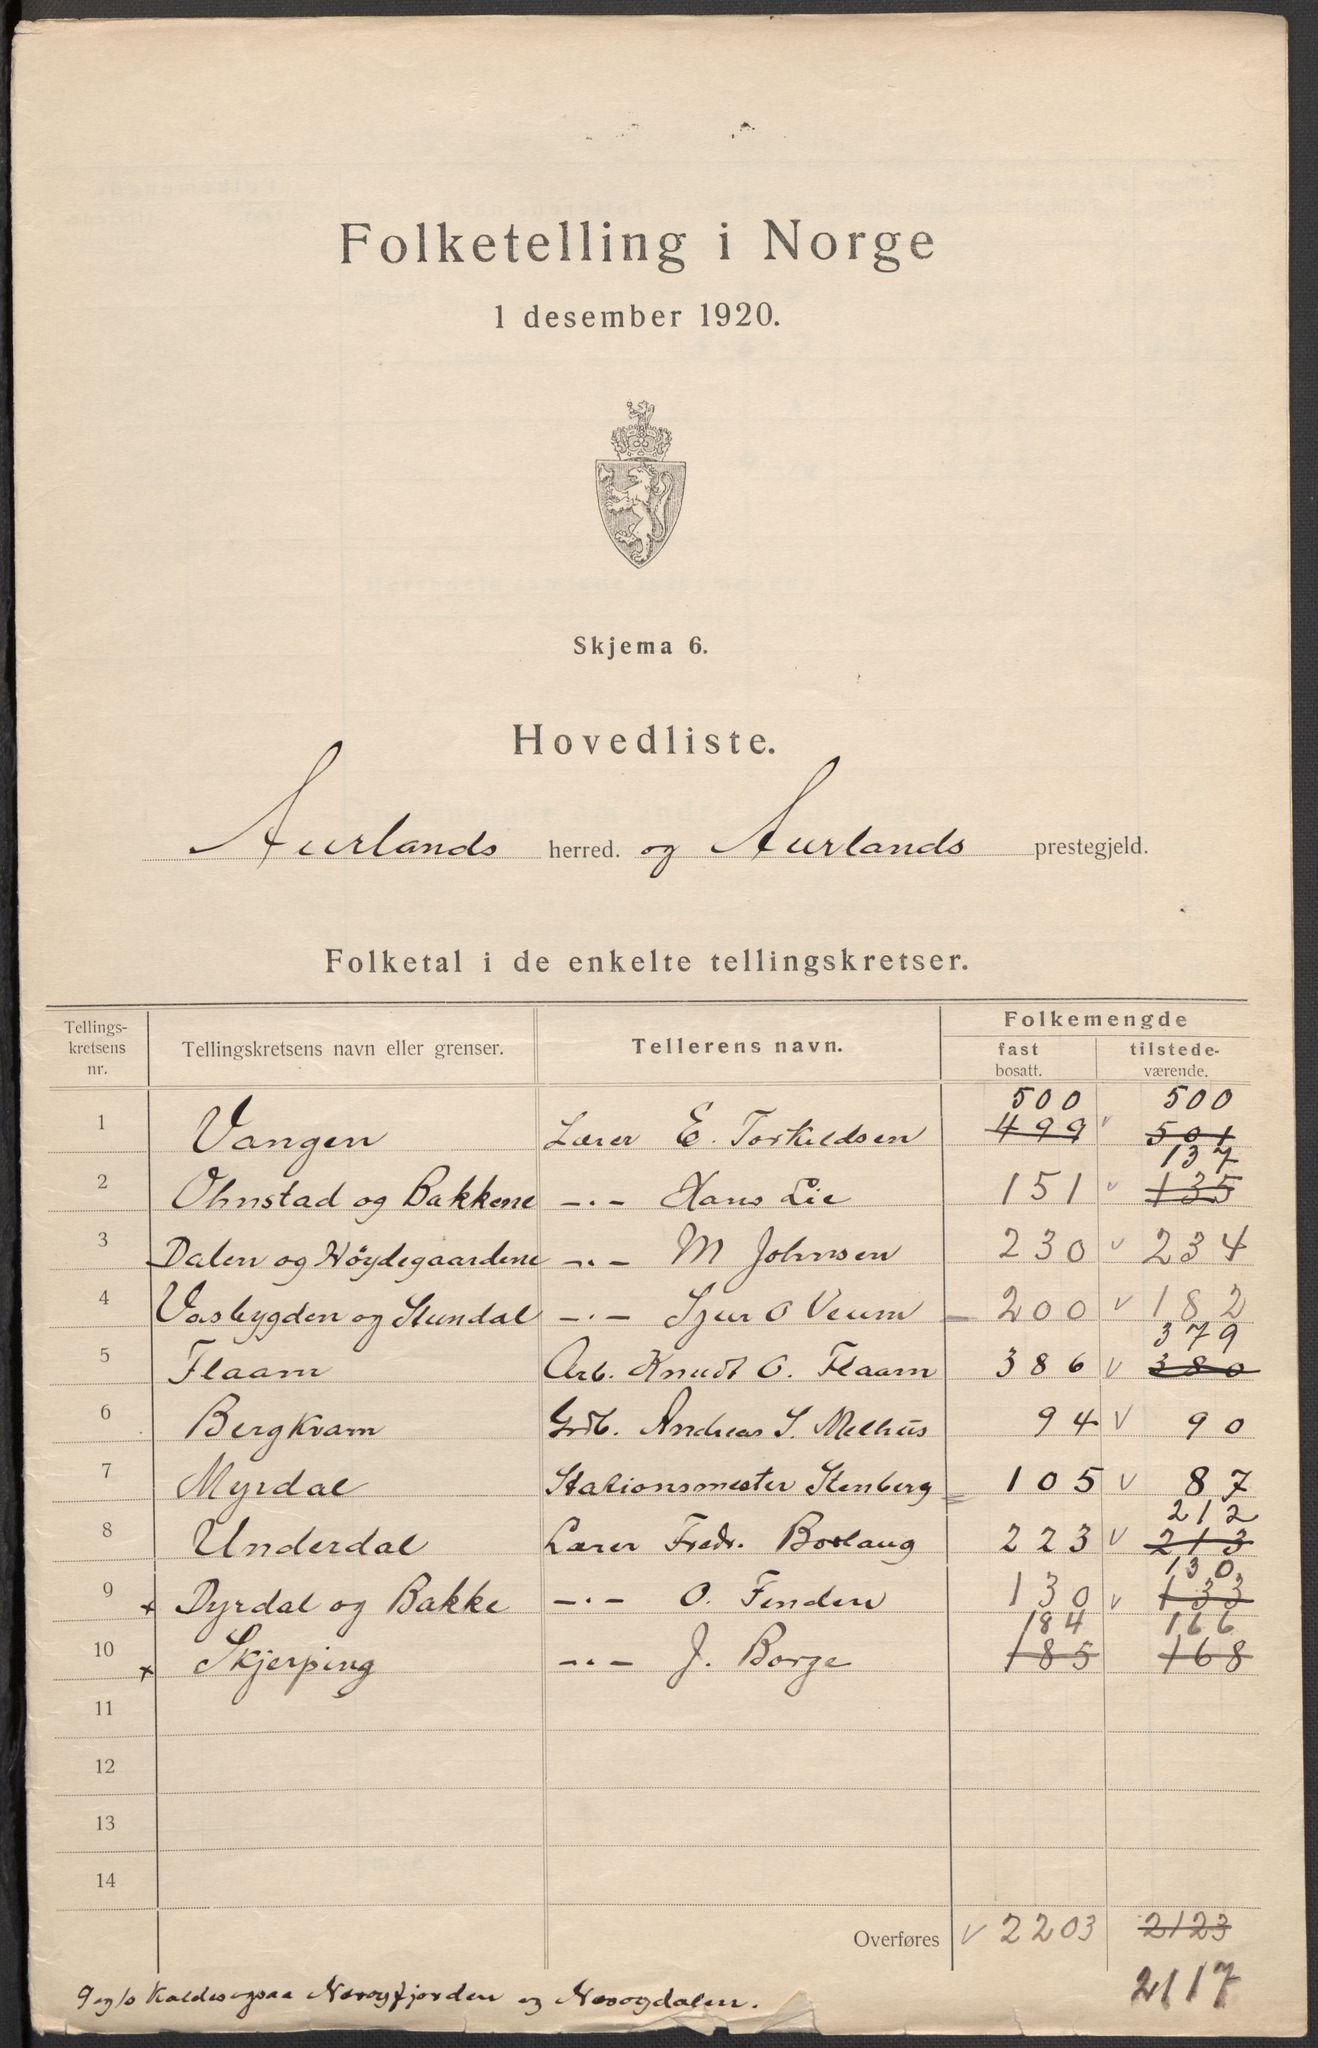 Folketelling i Norge
1 desember 1920.
Skjema 6.
Hovedliste.
Aurlands herred. og Aurlands prestegjeld.
Folketal i de enkelte tellingskretser.
Tellings-kretsens nr. Tellingskretsens navn eller grenser. Tellerens navn. Folkemengde
fast bosatt. tilstede-værende.
500 500
1 Vangen Lærer E. Torkildsen 499 v 501
137
2 Ohnstad og Bakkene -"- Hans Lie 151 v 135
3 Dalen og Høydegaardene -"- M Johnsen 230 v 234
4 Vasbygden og Stundal -"- Sjur O Veum 200 v 182
379
5 Flaam Arb. Knudt O. Flaam 386 v 380
6 Bergkvam Grdb. Andreas S. Melhus 94 v 90
7 Myrdal Stationsmester Stenberg 105 v 87
212
8 Underdal Lærer Fredr. Borlaug 223 v 213
130
9 x Dyrdal og Bakke -"- O. Fenden 130 v 133
184 166
10 x Skjerping -"- J. Borge 185 168
11
12
13
14
Overføres v 2203 2123
9 og 10 kaldes ogsaa Nærøyfjorden og Nærøydalen. 2117